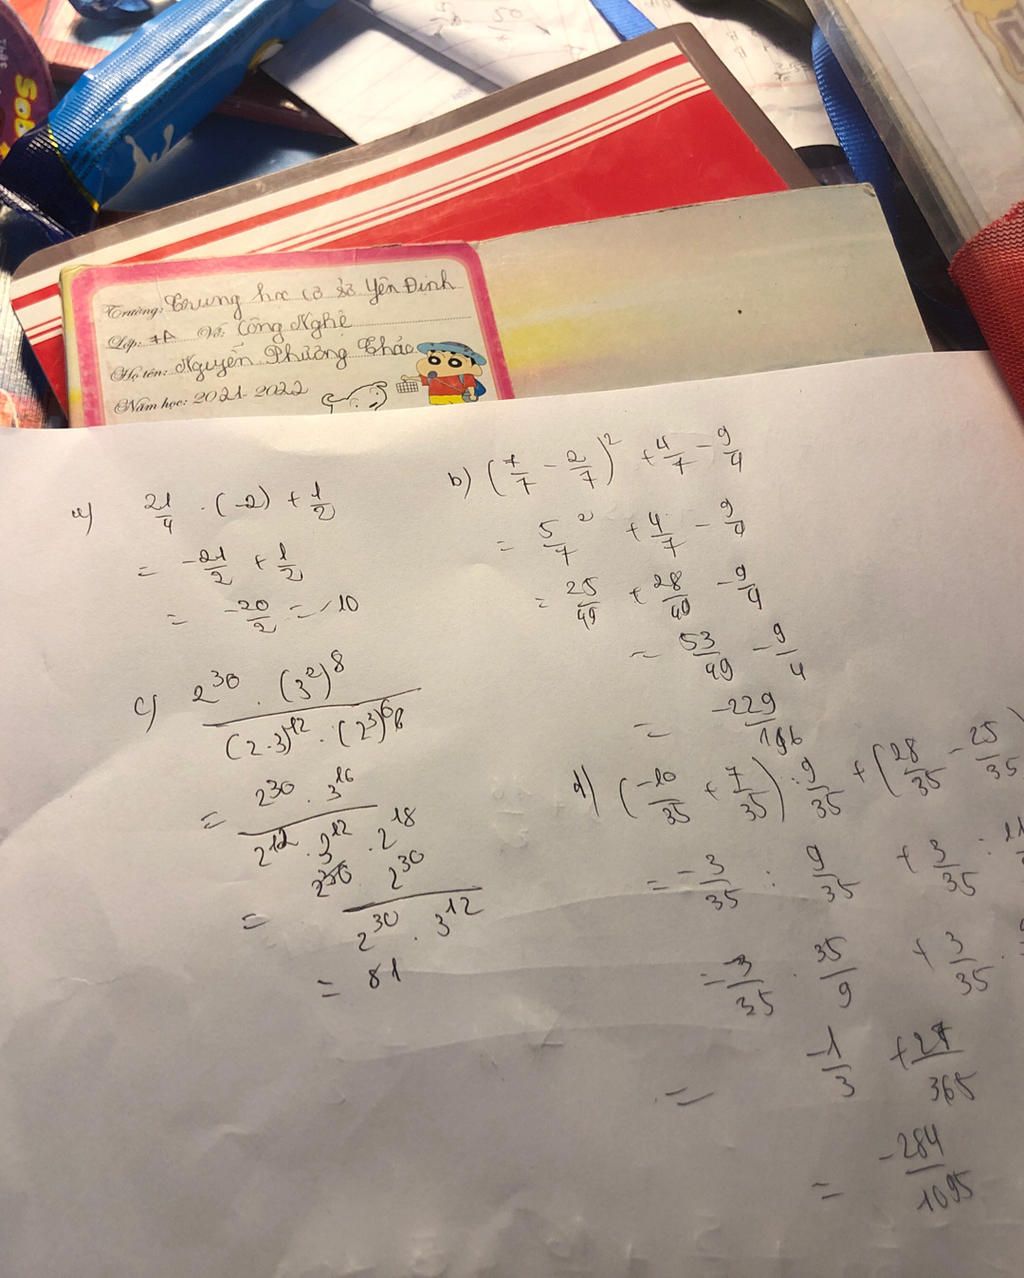 Trường: Trung học cơ sở Yên Định
Lớp: 7A Vở: Công Nghệ
Họ tên: Nguyễn Phương Thảo
Năm học: 2021-2022
a) 21/4 . (-2) + 1/2
= -21/2 + 1/2
= -20/2 = -10
b) (7/7 - 2/7)^2 + 4/7 - 9/4
= 5/7^2 + 4/7 - 9/4
= 25/49 + 28/49 - 9/4
= 53/49 - 9/4
= -229/196
c) 2^30 . (3^2)^8 / (2.3)^12 . (2^3)^6
= 2^30 . 3^16 / 2^12 . 3^12 . 2^18
= 2^30 / 2^30 . 3^12
= 81
d) (-10/35 + 7/35) : 9/35 + (28/35 - 25/35)
= -3/35 : 9/35 + 3/35 :
= -3/35 . 35/9 + 3/35 .
= -1/3 + 27/365
= -284/1095